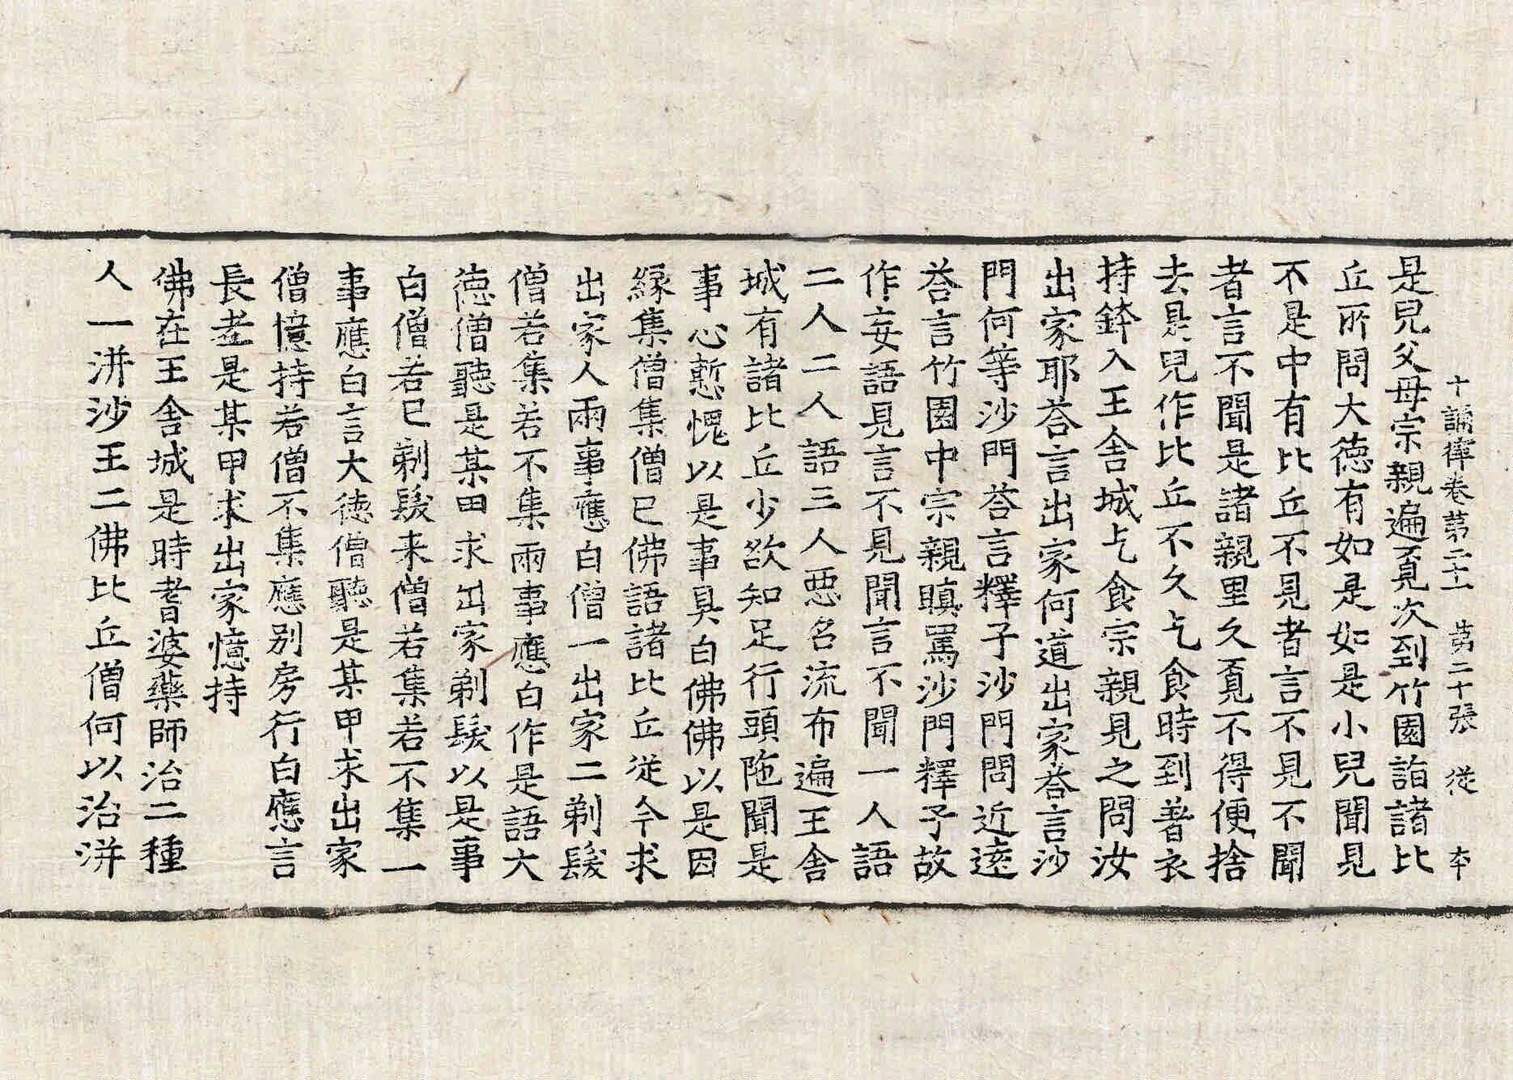 十誦律卷第二十一　第二十張　從　夲
是兒父母宗親遍覔次到竹園詣諸比
丘所問大徳有如是如是小兒聞見
不是中有比丘不見者言不見不聞
者言不聞是諸親里久覔不得便捨
去是兒作比丘不久乞食時到著衣
持鉢入王舍城乞食宗親見之問汝
出家耶荅言出家何道出家荅言沙
門何等沙門荅言釋子沙門問近遠
荅言竹園中宗親瞋罵沙門釋子故
作妄語見言不見聞言不聞一人語
二人二人語三人惡名流布遍王舍
城有諸比丘少欲知足行頭陁聞是
事心慙愧以是事具白佛佛以是因
縁集僧集僧已佛語諸比丘從今求
出家人兩事應白僧一出家二剃髮
僧若集若不集兩事應白作是語大
徳僧聽是某甲求出家剃髮以是事
白僧若已剃髮来僧若集若不集一
事應白言大徳僧聽是某甲求出家
僧憶持若僧不集應別房行白應言
長老是某甲求出家憶持
佛在王舍城是時耆婆藥師治二種
人一洴沙王二佛比丘僧何以治洴